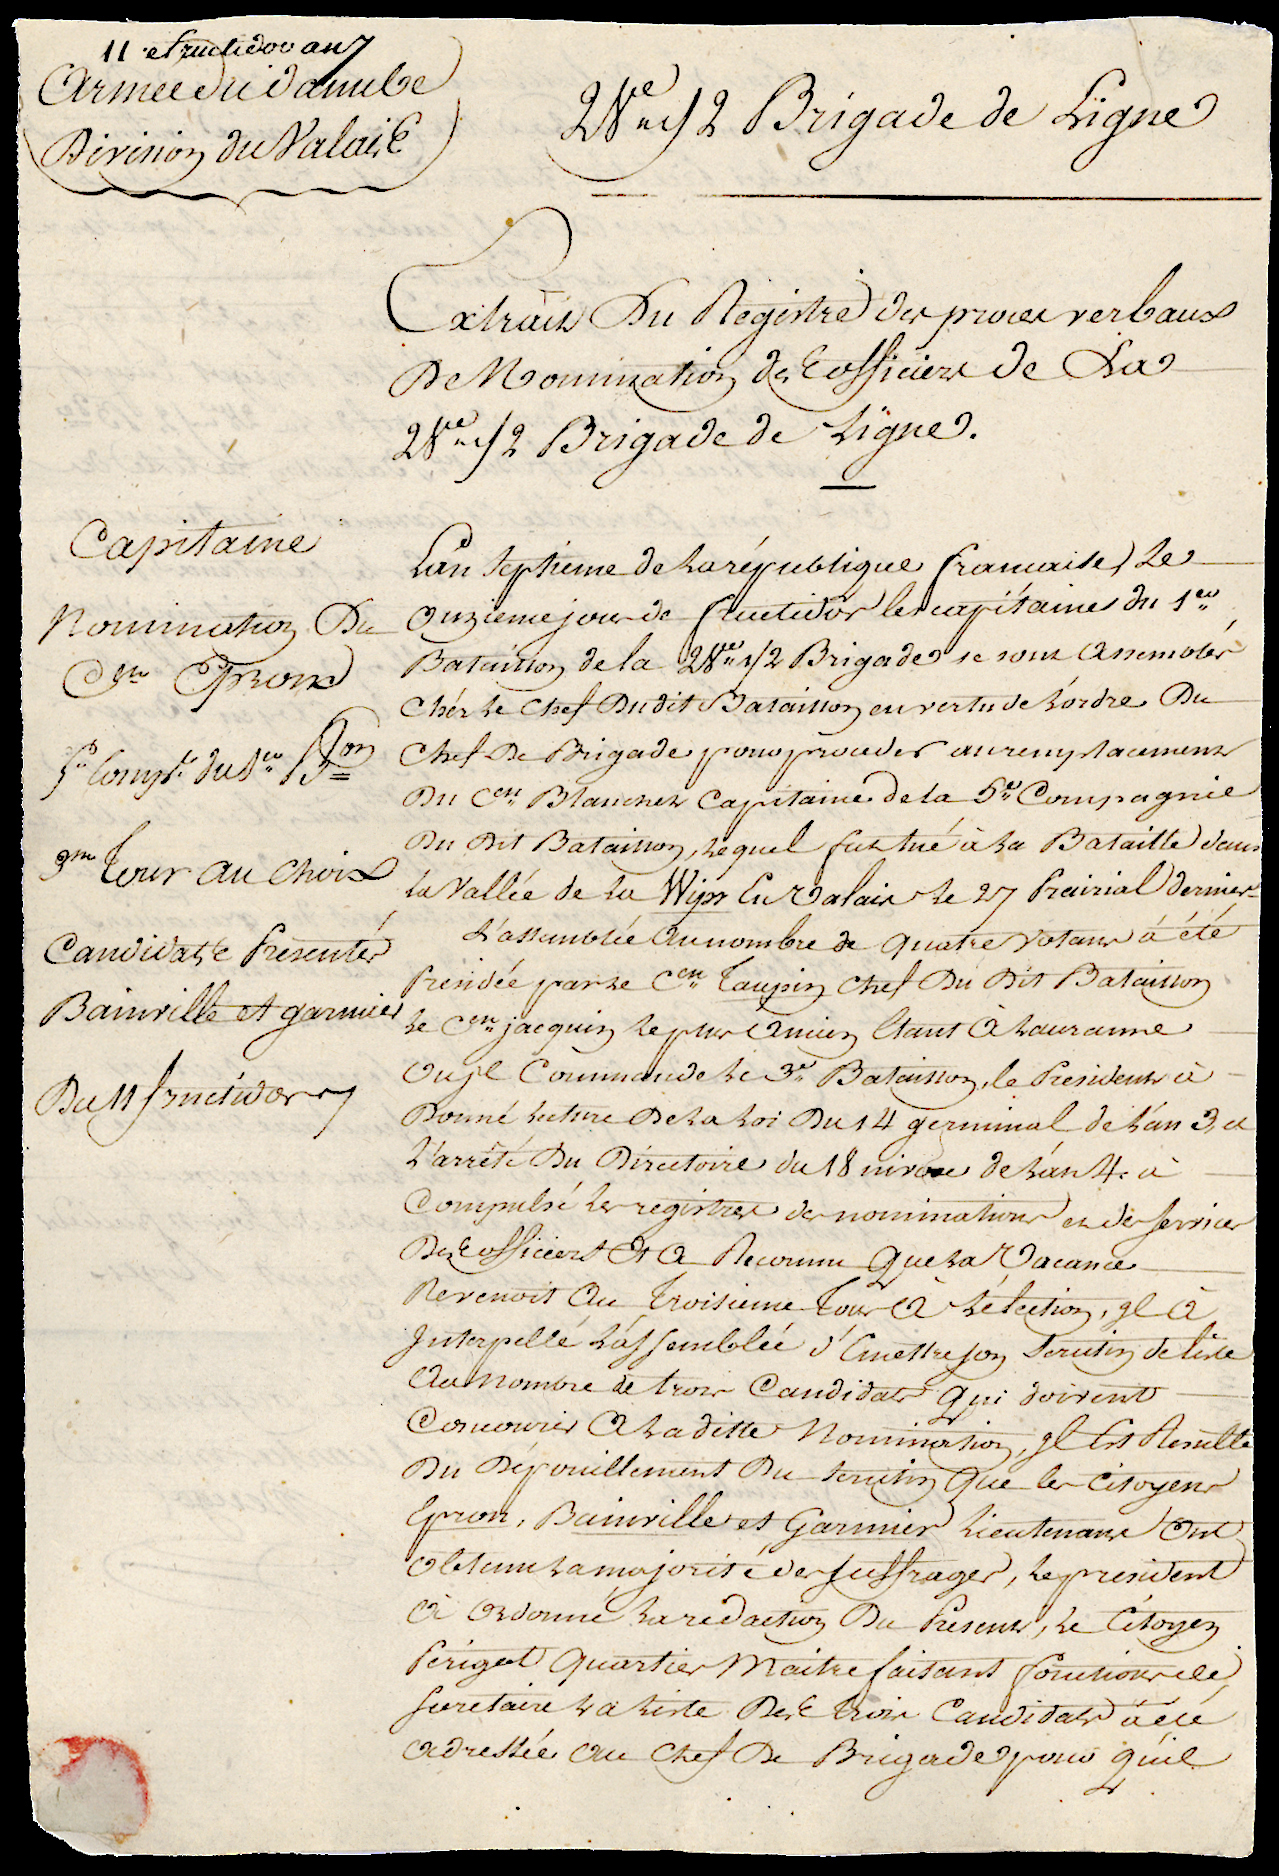 11 fructidor an 7
Armée du danube
Division du Valais
28e 1/2 Brigade de Ligne
Extrait Du Régistre des proces verbaux
De Nomination des officiers de La
28e 1/2 Brigade de Ligne.
Capitaine
Nomination Du
Cen Epron
5e Compie du 1er Bon
3me Tour au choix
Candidats Presentés
Bainville et garnier
Du 11 fructidor 7
L'an Septieme de La république francaise, Le
Onzieme jour de fructidor les capitaines du 1er
Bataillon de la 28e 1/2 Brigade se sont assemblés
chés Le Chef Dudit Bataillon en vertu de L'ordre Du
Chef De Brigade pour proceder au remplacement
Du Cen Blanchet Capitaine de la 5e Compagnie
Du Dit Bataillon, Lequel fut tué à La Bataille dans
La Vallée de La En Valais Le 27 Prairial dernier
L'assemblée Au nombre de quatre votans à été
Présidée par Le Cen Taupin Chef Du Dit Bataillon
Le Cen jacquin Le plus Ancien Etant à Lauzanne
Ou jl Commande Le 3e Bataillon, le President à
Donné Lecture De La Loi Du 14 germinal de L'an 3, et
L'arrêté Du Directoire du 18 nivose de L'an 4. à
Compulsé Les registres des nominations et des services
Des officiers Et A Reconnu Que La Vacance
Revenoit Au Troisieme Tour à L'élection, jl à
Interpellé L'assemblée d'Emettre son Scrutin de liste
Au Nombre de trois Candidats Qui doivent
Concourir à La ditte Nomination, jl Est Resulté
Du Dépouillement Du Scrutin Que les Citoyens
Epron, Bainville et Garnier Lieutenans Ont
Obtenu La majorité des suffrages, Le président
à Ordonné La rédaction Du Présent, Le Citoyen
Périgot Quartier Maitre faisant fonctions de
secretaire La Liste Des trois Candidats à été
adressée Au Chef De Brigade pour qu'il